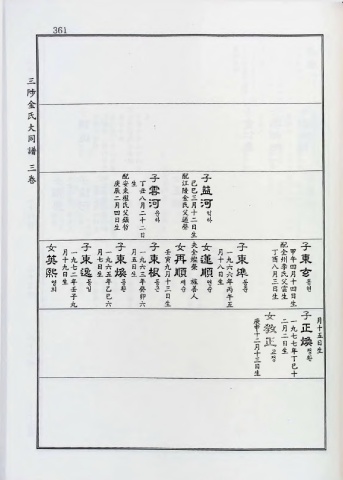 361
三陟金氏大同譜 三卷
子益河 익하
己巳三月十二日生
配江陵金氏父通燮
生
子雲河 운하
丁丑八月二十二日
生
配安東權氏父鎭哲
庚辰二月四日生
子東玄 동현
甲午四月十四日生
配全州李氏父富生
丁酉八月三日生
子東準 동준
一九六六年丙午五
月十八日生
女蓮順 연순
夫全燦馨 旌善人
女再順 재순
壬寅九月十三日生
子東根 동근
一九六三年癸卯六
月五日生
子東煥 동환
一九六五年乙巳六
月七日生
子東逸 동일
一九七二年壬子九
月十九日生
女英熙 영희
月十五日生
子正煥 정환
一九七七年丁巳十
二月二日生
女敎正 교정
庚申十二月十三日生